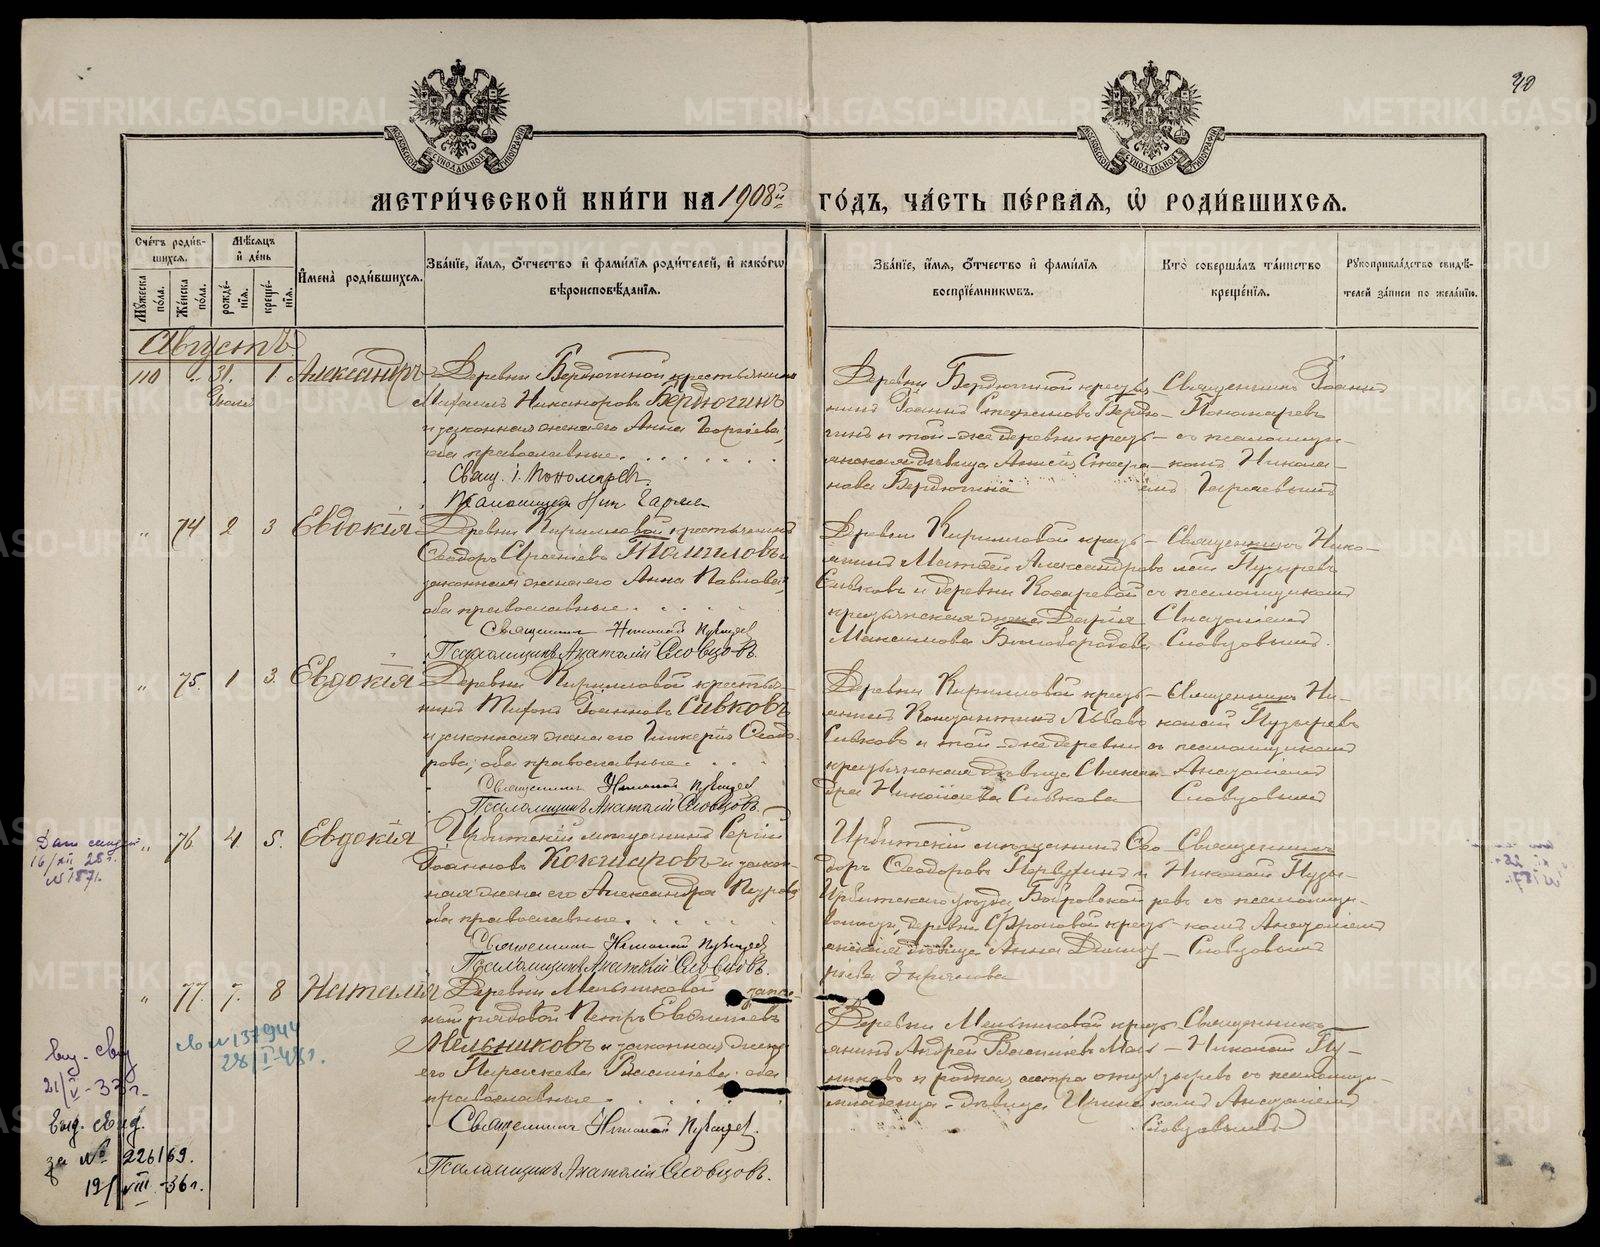 40
МОСКОВСКОЙ СѴНОДАЛЬНОЙ ТИПОГРАФІИ
МОСКОВСКОЙ СѴНОДАЛЬНОЙ ТИПОГРАФІИ
МЕТРИ́ЧЕСКОЙ КНИ́ГИ НА 1908й ГО́ДЪ, ЧА́СТЬ ПЕ́РВАЯ, Ѡ РОДИ́ВШИХСЯ.
Сче́тъ роди́в-
шихся.
Мꙋжеска по́ла.
Же́нска по́ла.
Мѣ́сяцъ
и҆ де́нь
рожде́-
нія.
креще́-
нія.
И҆мена̀ роди́вшихся.
Зва́ніе, и҆́мя, ѻ҆́тчество и҆ фами́лія роди́телей, и҆ како́гѡ
вѣроисповѣ́данія.
Зва́ніе, и҆́мя, ѻ҆́тчество и҆ фами́лія
воспріе́мникѡвъ.
Кто̀ соверша́лъ та́инство
креще́нія.
Рꙋкоприкла́дство свидѣ́-
телей за́писи по жела́нію.
Августъ.
110 " 31. Іюля 1 Александръ
Деревни Бердюгиной крестьянинъ
Михаилъ Никаноровъ Бердюгинъ
и законная жена его Анна Георгіева,
оба православные.
Свящ. І. Пономаревъ.
Псаломщикъ Ник.
Деревни Бердюгиной кресть-
нинъ Іоаннъ Стефановъ Бердю-
гинъ и той-же деревни кресть-
янская дѣвица
нова Бердюгина
Священникъ Іоаннъ
Пономаревъ
съ псаломщи-
комъ Никола-
емъ
" 74 2 3 Евдокія
Деревни Кирилловой крестьянинъ
Ѳеодоръ Томиловъ и
законная жена его Анна Павлова,
оба православные.
Священникъ Николай Пузыревъ
Псаломщикъ Анатолій Словцовъ.
Деревни Кирилловой кресть-
янинъ Матѳей Александровъ
Сивковъ и деревни Косаревой
крестьянская жена Дарія
Максимова Бѣлобородова
Священникъ Нико-
лай Пузыревъ
съ псаломщикомъ
Анатоліемъ
Словцовымъ.
" 75. 1 3. Евдокія
Деревни Кирилловой крестья-
нинъ Тихонъ Іоанновъ Сивковъ
и законная жена его Гликерія Ѳеодо-
рова, оба православные.
Священникъ Николай Пузыревъ
Псаломщикъ Анатолій Словцовъ.
Деревни Кирилловой кресть-
янинъ Константинъ Львовъ
Сивковъ и той-же деревни
крестьянская дѣвица Алексан-
дра Николаева Сивкова
Священникъ Ни-
колай Пузыревъ
съ псаломщикомъ
Анатоліемъ
Словцовымъ
" 76. 4 5. Евдокія
Ирбитскій мѣщанинъ Сергій
Іоанновъ Кокшаровъ и закон-
ная жена его Александра Петрова,
оба православные.
Священникъ Николай Пузыревъ
Псаломщикъ Анатолій Словцовъ.
Ирбитскій мѣщанинъ Ѳео-
доръ Ѳеодоровъ Первухинъ и
Ирбитскаго уѣзда,
волости, деревни кресть-
янская дѣвица Анна Димит-
ріева Зырянова
Священникъ
Николай Пузы-
ревъ съ псаломщи-
комъ Анатоліемъ
Словцовымъ
16/XII 28г.
№ 1871.
" 77. 7. 8 Наталія
Деревни Мельниковой запас-
ный рядовой Петръ Евдокимовъ
Мельниковъ и законная жена
его Параскева Васильева, оба
православные.
Священникъ Николай Пузыревъ.
Псаломщикъ Анатолій Словцовъ.
Деревни Мельниковой кресть-
янинъ Андрей Васильевъ Мель-
никовъ и родная сестра отца
младенца, дѣвица Ирина
Священникъ
Николай Пу-
зыревъ съ псаломщи-
комъ Анатоліемъ
Словцовымъ
св № 137944
28/I-48г.
выд. свид
21/V-33г.
Выд. свид.
за № 226169.
19/VIII-36г.